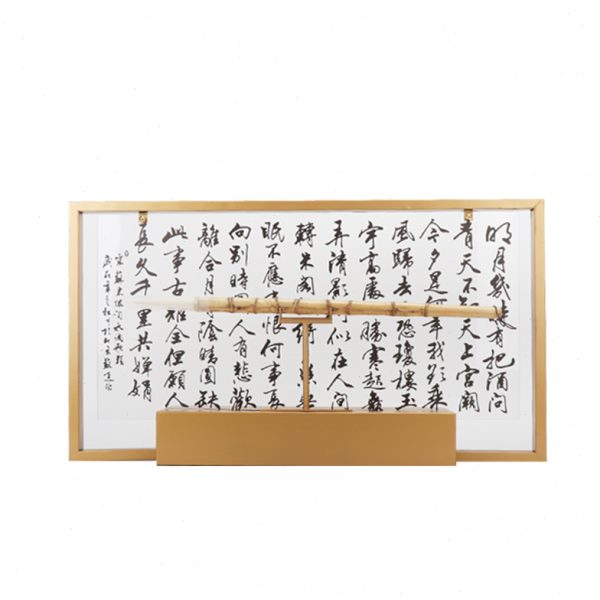 明月幾時有把酒問
青天不知天上宮闕
今夕是何年我欲乘
風歸去恐瓊樓玉
宇高處勝寒起舞
弄清影何似在人間
轉朱閣綺無
眠不應有恨何事長
向別時人有悲歡
離合月陰晴圓缺
此事古難全但願人
長久千里共嬋娟
宋蘇東坡詞水調歌頭